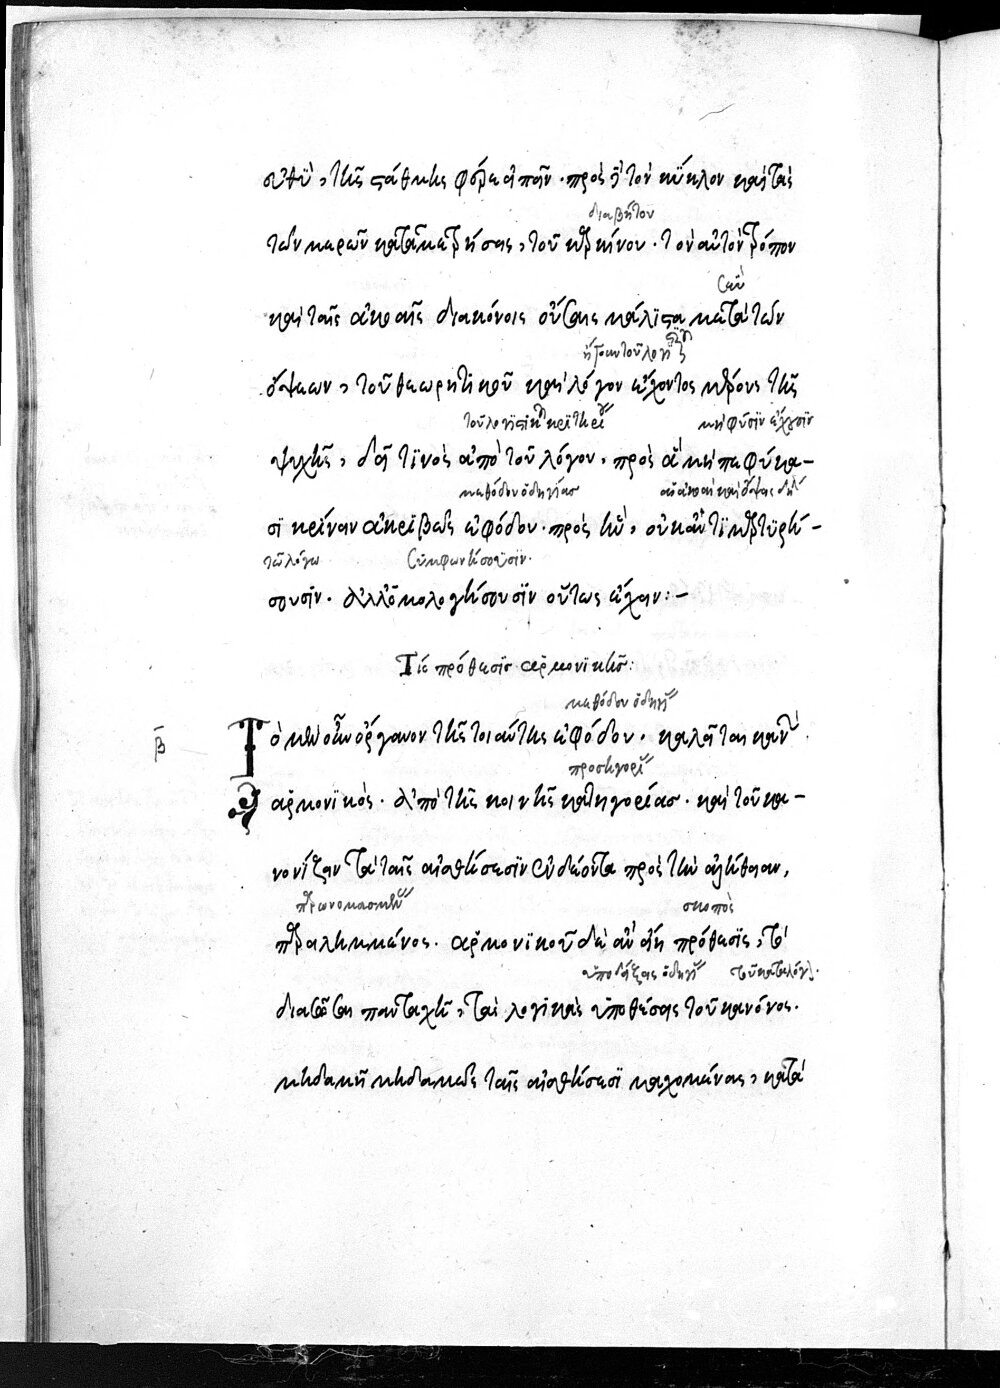 εὐθὺ, τῆς στάθμης φέρε εἰπεῖν· πρὸς δὲ τὸν κύκλον καὶ τὰς
διαβήτου
τῶν μερῶν καταμετρήσεις, τοῦ καρκίνου· τὸν αὐτὸν τρόπον
σὺν
καὶ ταῖς ἀκοαῖς διακόνοις οὔσαις μάλιστα μετὰ τῶν
ἤγουν τοῦ λογιστικοῦ
ὄψεων, τοῦ θεωρητικοῦ καὶ λόγον ἔχοντος μέρους τῆς
τοῦ λογιστικοῦ κριτηρίου μὴ φύσιν ἔχουσιν
ψυχῆς, δεῖ τινὸς ἀπὸ τοῦ λόγου, πρὸς ἃ μὴ πεφύκα–
μεθόδου ὁδηγίας αἱ ἀκοαὶ καὶ ὄψεις δηλ
σι κρίνειν ἀκριβῶς ἐφόδου· πρὸς ἣν, οὐκ ἀντιμαρτυρή–
τῷ λόγω συμφωνήσουσιν·
σουσιν· ἀλλ' ὁμολογήσουσιν οὕτως ἔχειν:–
Τίς πρόθεσις ἁρμονικῆς:
μεθόδου ὁδηγί
β Τὸ μὲν οὖν ὄργανον τῆς τοιαύτης ἐφόδου· καλεῖται κανὼν
προσηγορί
ἁρμονικὸς· ἀπὸ τῆς κοινῆς κατηγορίας· καὶ τοῦ κα–
νονίζειν τὰ ταῖς αἰσθήσεσιν ἐνδέοντα πρὸς τὴν ἀλήθειαν,
σκοπὸς
παρειλημμένος· ἁρμονικοῦ δὲ ἂν εἴη πρόθεσις, τὸ
ὑποδείξεις ὁδηγί
διασῶσαι πανταχῆ, τὰς λογικὰς ὑποθέσεις τοῦ κανόνος·
μηδαμῆ μηδαμῶς ταῖς αἰσθήσεσι μαχομένας, κατὰ